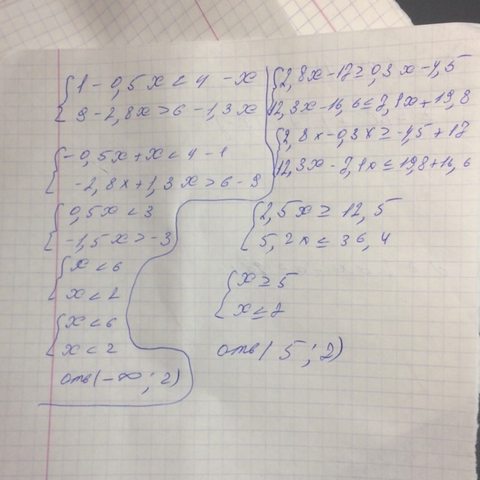 1 - 0,5x < 4 - x
9 - 2,8x > 6 - 1,3x
-0,5x + x < 4 - 1
-2,8x + 1,3x > 6 - 9
0,5x < 3
-1,5x > -3
x < 6
x < 2
x < 6
x < 2
отв(-∞; 2)
2,8x - 17 ≥ 0,3x - 4,5
12,3x - 16,6 ≤ 7,1x + 19,8
2,8x - 0,3x ≥ -4,5 + 17
12,3x - 7,1x ≤ 19,8 + 16,6
2,5x ≥ 12,5
5,2x ≤ 36,4
x ≥ 5
x ≤ 7
отв(5; 7)